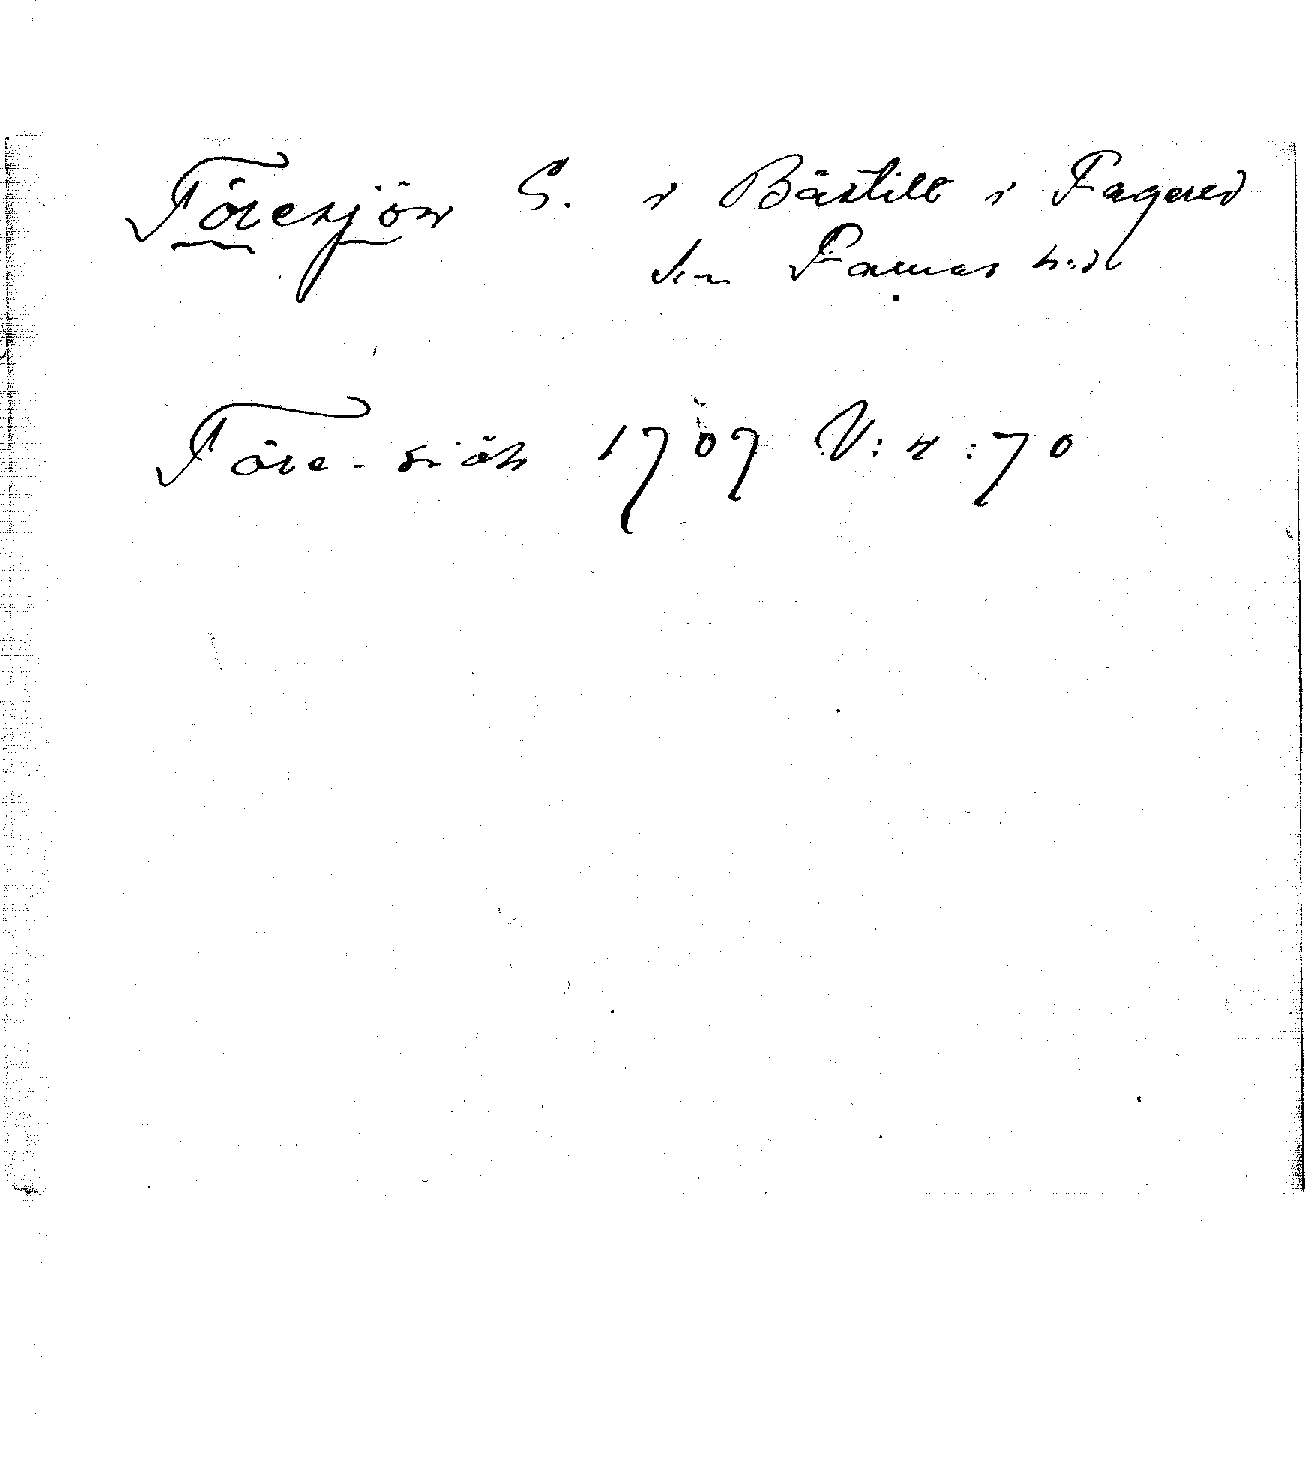 Töresjön S. i Bästilt i Fagered
sn Faurås hrd
Töre-siöh 1707 V:4:70